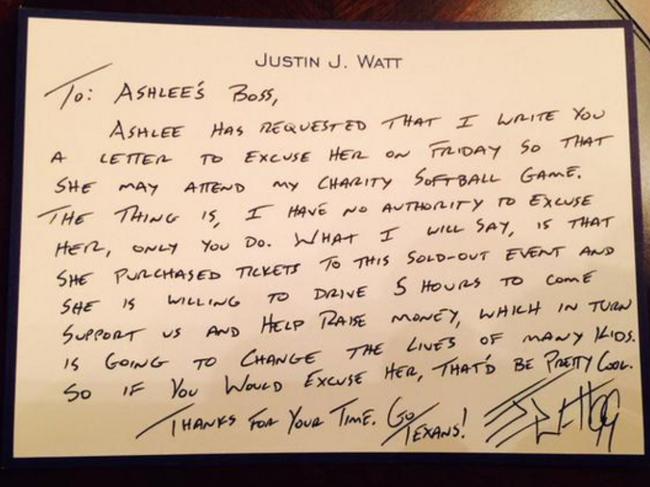 JUSTIN J. WATT
TO: ASHLEE'S BOSS,
ASHLEE HAS REQUESTED THAT I WRITE YOU
A LETTER TO EXCUSE HER ON FRIDAY SO THAT
SHE MAY ATTEND MY CHARITY SOFTBALL GAME.
THE THING IS, I HAVE NO AUTHORITY TO EXCUSE
HER, ONLY YOU DO. WHAT I WILL SAY, IS THAT
SHE PURCHASED TICKETS TO THIS SOLD-OUT EVENT AND
SHE IS WILLING TO DRIVE 5 HOURS TO COME
SUPPORT US AND HELP RAISE MONEY, WHICH IN TURN
IS GOING TO CHANGE THE LIVES OF MANY KIDS.
SO IF YOU WOULD EXCUSE HER, THAT'D BE PRETTY COOL.
THANKS FOR YOUR TIME. GO
TEXANS! JJ Watt 99